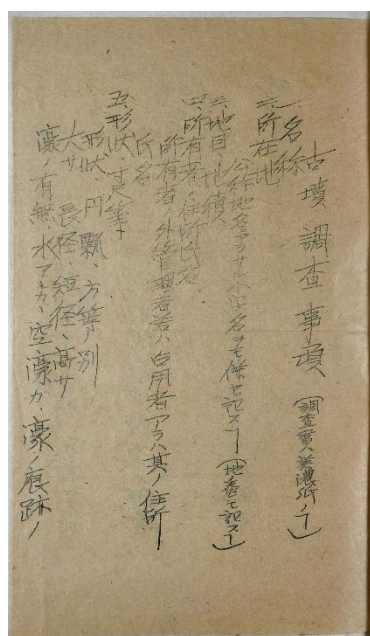 古墳調査事項（調査書ハ美濃紙ノ﹁）
一、名称
二、所在地
公称地名ニアラサル小字名ヲモ併セ記スヿ（地番モ記スヿ）
三、地目、地積
四、所有者ノ住所氏名
所有者ノ外管理者若ハ占用者アラハ其ノ住所
氏名
五、形状
形状 円、瓢、方等ノ別
大サ 長径、短径、高サ
濠ノ有無、水アルカ、空濠カ、濠ノ痕跡ノ